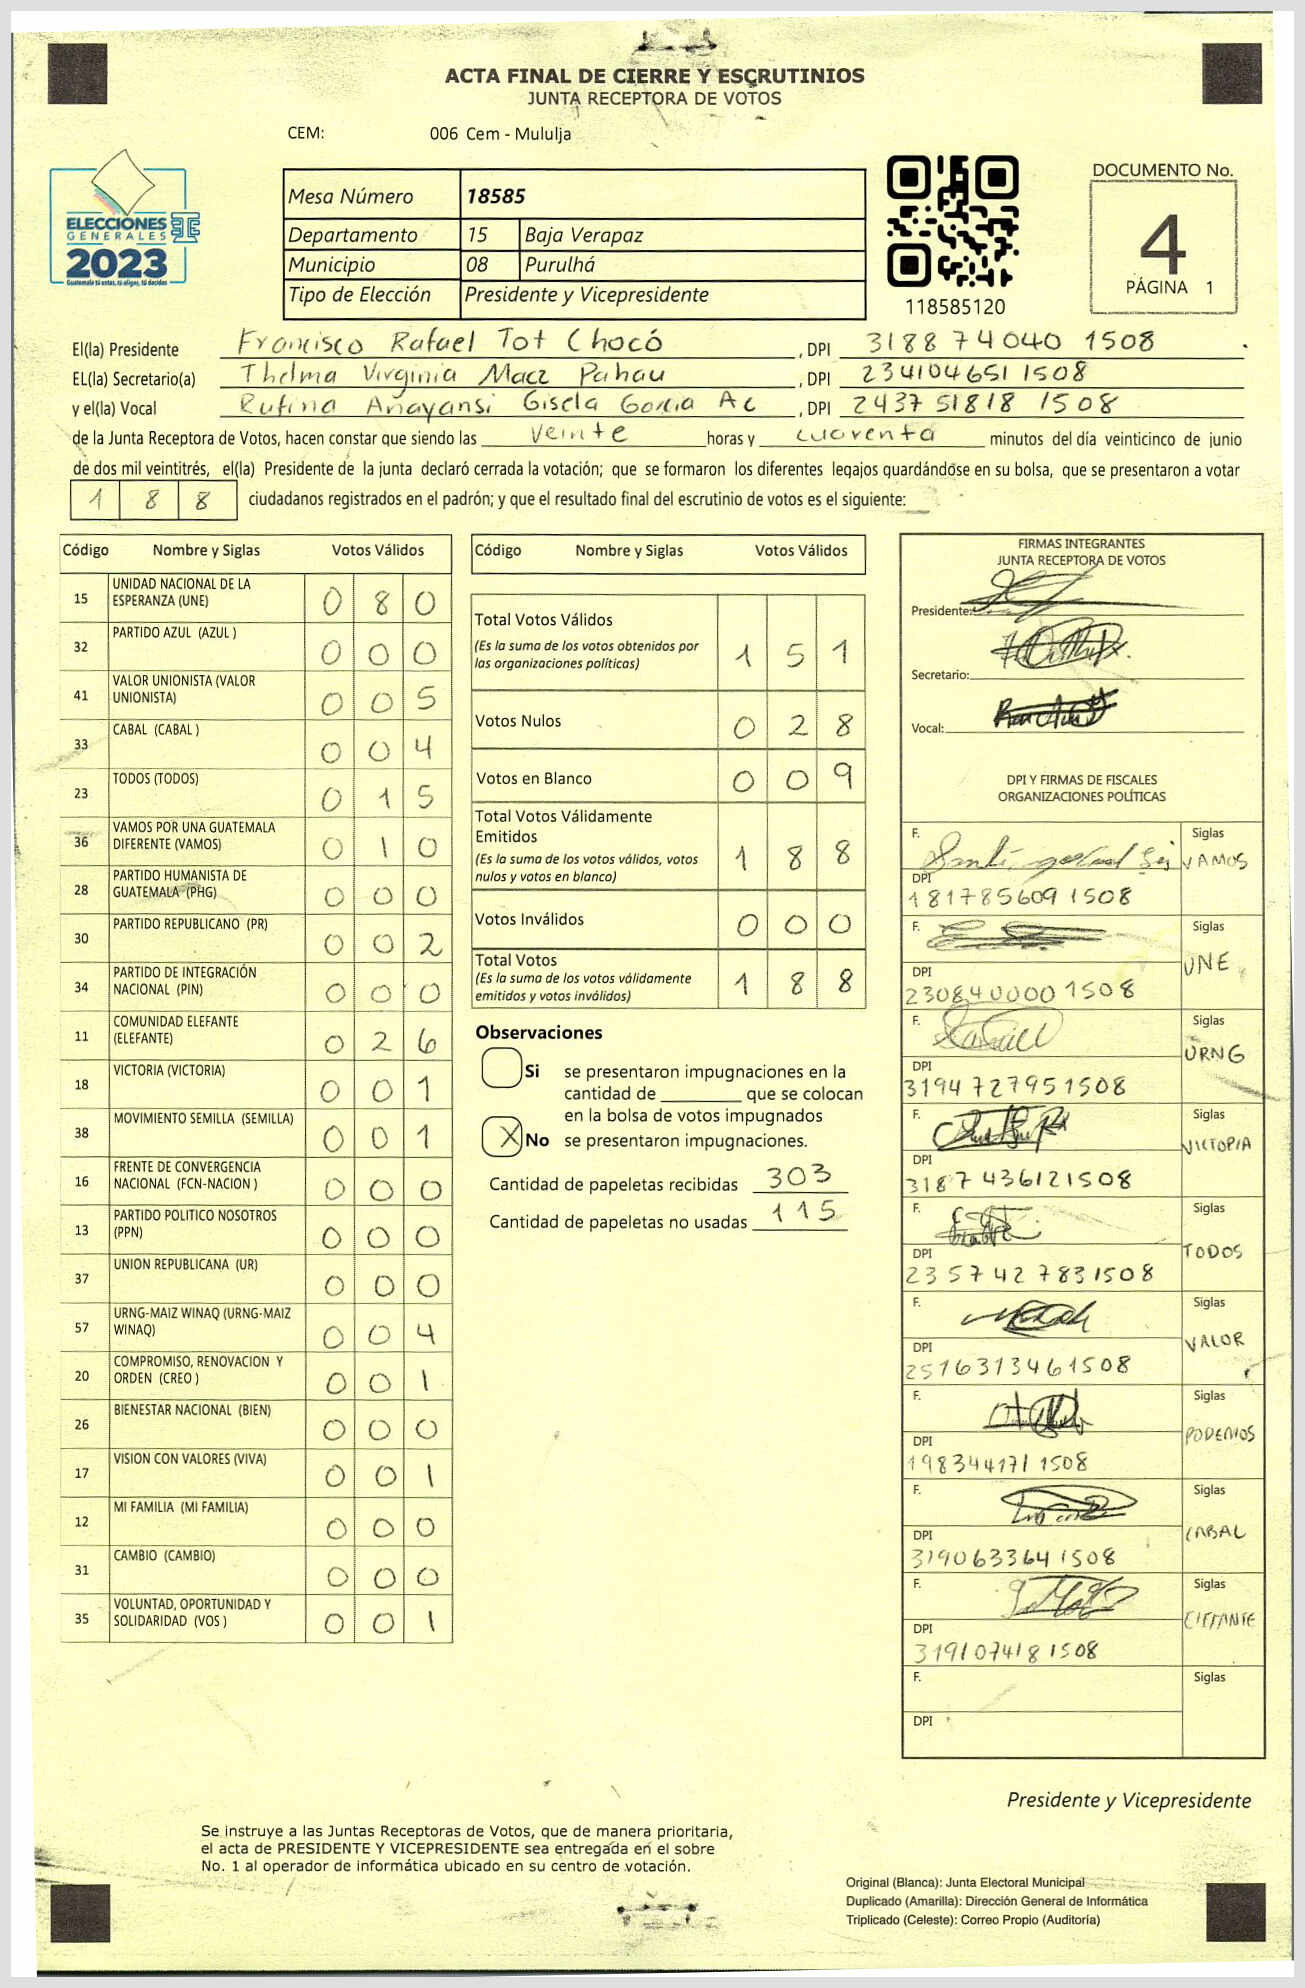 ACTA FINAL DE CIERRE Y ESCRUTINIOS
JUNTA RECEPTORA DE VOTOS
CEM: 006 Cem - Mululja
ELECCIONES
GENERALES
2023
Guatemala tú votas, tú eliges, tú decides
Mesa Número 18585
Departamento 15 Baja Verapaz
Municipio 08 Purulhá
Tipo de Elección Presidente y Vicepresidente
118585120
DOCUMENTO No.
4
PÁGINA 1
El(la) Presidente Francisco Rafael Tot Chocó , DPI 3188 74040 1508
EL(la) Secretario(a) Thelma Virginia Macz Pahau , DPI 234104651 1508
y el(la) Vocal Rufina Anayansi Gisela Garcia Ac , DPI 2437 51818 1508
de la Junta Receptora de Votos, hacen constar que siendo las veinte horas y cuarenta minutos del día veinticinco de junio
de dos mil veintitrés, el(la) Presidente de la junta declaró cerrada la votación; que se formaron los diferentes legajos quardándose en su bolsa, que se presentaron a votar
1 8 8 ciudadanos registrados en el padrón; y que el resultado final del escrutinio de votos es el siguiente:
Código Nombre y Siglas Votos Válidos
15 UNIDAD NACIONAL DE LA ESPERANZA (UNE) 0 8 0
32 PARTIDO AZUL (AZUL ) 0 0 0
41 VALOR UNIONISTA (VALOR UNIONISTA) 0 0 5
33 CABAL (CABAL ) 0 0 4
23 TODOS (TODOS) 0 1 5
36 VAMOS POR UNA GUATEMALA DIFERENTE (VAMOS) 0 1 0
28 PARTIDO HUMANISTA DE GUATEMALA (PHG) 0 0 0
30 PARTIDO REPUBLICANO (PR) 0 0 2
34 PARTIDO DE INTEGRACIÓN NACIONAL (PIN) 0 0 0
11 COMUNIDAD ELEFANTE (ELEFANTE) 0 2 6
18 VICTORIA (VICTORIA) 0 0 1
38 MOVIMIENTO SEMILLA (SEMILLA) 0 0 1
16 FRENTE DE CONVERGENCIA NACIONAL (FCN-NACION ) 0 0 0
13 PARTIDO POLITICO NOSOTROS (PPN) 0 0 0
37 UNION REPUBLICANA (UR) 0 0 0
57 URNG-MAIZ WINAQ (URNG-MAIZ WINAQ) 0 0 4
20 COMPROMISO, RENOVACION Y ORDEN (CREO ) 0 0 1
26 BIENESTAR NACIONAL (BIEN) 0 0 0
17 VISION CON VALORES (VIVA) 0 0 1
12 MI FAMILIA (MI FAMILIA) 0 0 0
31 CAMBIO (CAMBIO) 0 0 0
35 VOLUNTAD, OPORTUNIDAD Y SOLIDARIDAD (VOS ) 0 0 1
Código Nombre y Siglas Votos Válidos
Total Votos Válidos
(Es la suma de los votos obtenidos por
las organizaciones políticas) 1 5 1
Votos Nulos 0 2 8
Votos en Blanco 0 0 9
Total Votos Válidamente
Emitidos
(Es la suma de los votos válidos, votos
nulos y votos en blanco) 1 8 8
Votos Inválidos 0 0 0
Total Votos
(Es la suma de los votos válidamente
emitidos y votos inválidos) 1 8 8
Observaciones
Si se presentaron impugnaciones en la
cantidad de ________ que se colocan
en la bolsa de votos impugnados
X No se presentaron impugnaciones.
Cantidad de papeletas recibidas 303
Cantidad de papeletas no usadas 115
FIRMAS INTEGRANTES
JUNTA RECEPTORA DE VOTOS
Presidente:
Secretario:
Vocal:
DPI Y FIRMAS DE FISCALES
ORGANIZACIONES POLÍTICAS
F. Siglas VAMOS
DPI 181785609 1508
F. Siglas UNE
DPI 230840000 1508
F. Siglas URNG
DPI 3194 72795 1508
F. Siglas VICTORIA
DPI 3187 43612 1508
F. Siglas TODOS
DPI 2357 42783 1508
F. Siglas VALOR
DPI 251631346 1508
F. Siglas PODEMOS
DPI 198344171 1508
F. Siglas CABAL
DPI 319063364 1508
F. Siglas
DPI 319107418 1508
F. Siglas
DPI
Presidente y Vicepresidente
Se instruye a las Juntas Receptoras de Votos, que de manera prioritaria,
el acta de PRESIDENTE Y VICEPRESIDENTE sea entregada en el sobre
No. 1 al operador de informática ubicado en su centro de votación.
Original (Blanca): Junta Electoral Municipal
Duplicado (Amarilla): Dirección General de Informática
Triplicado (Celeste): Correo Propio (Auditoría)